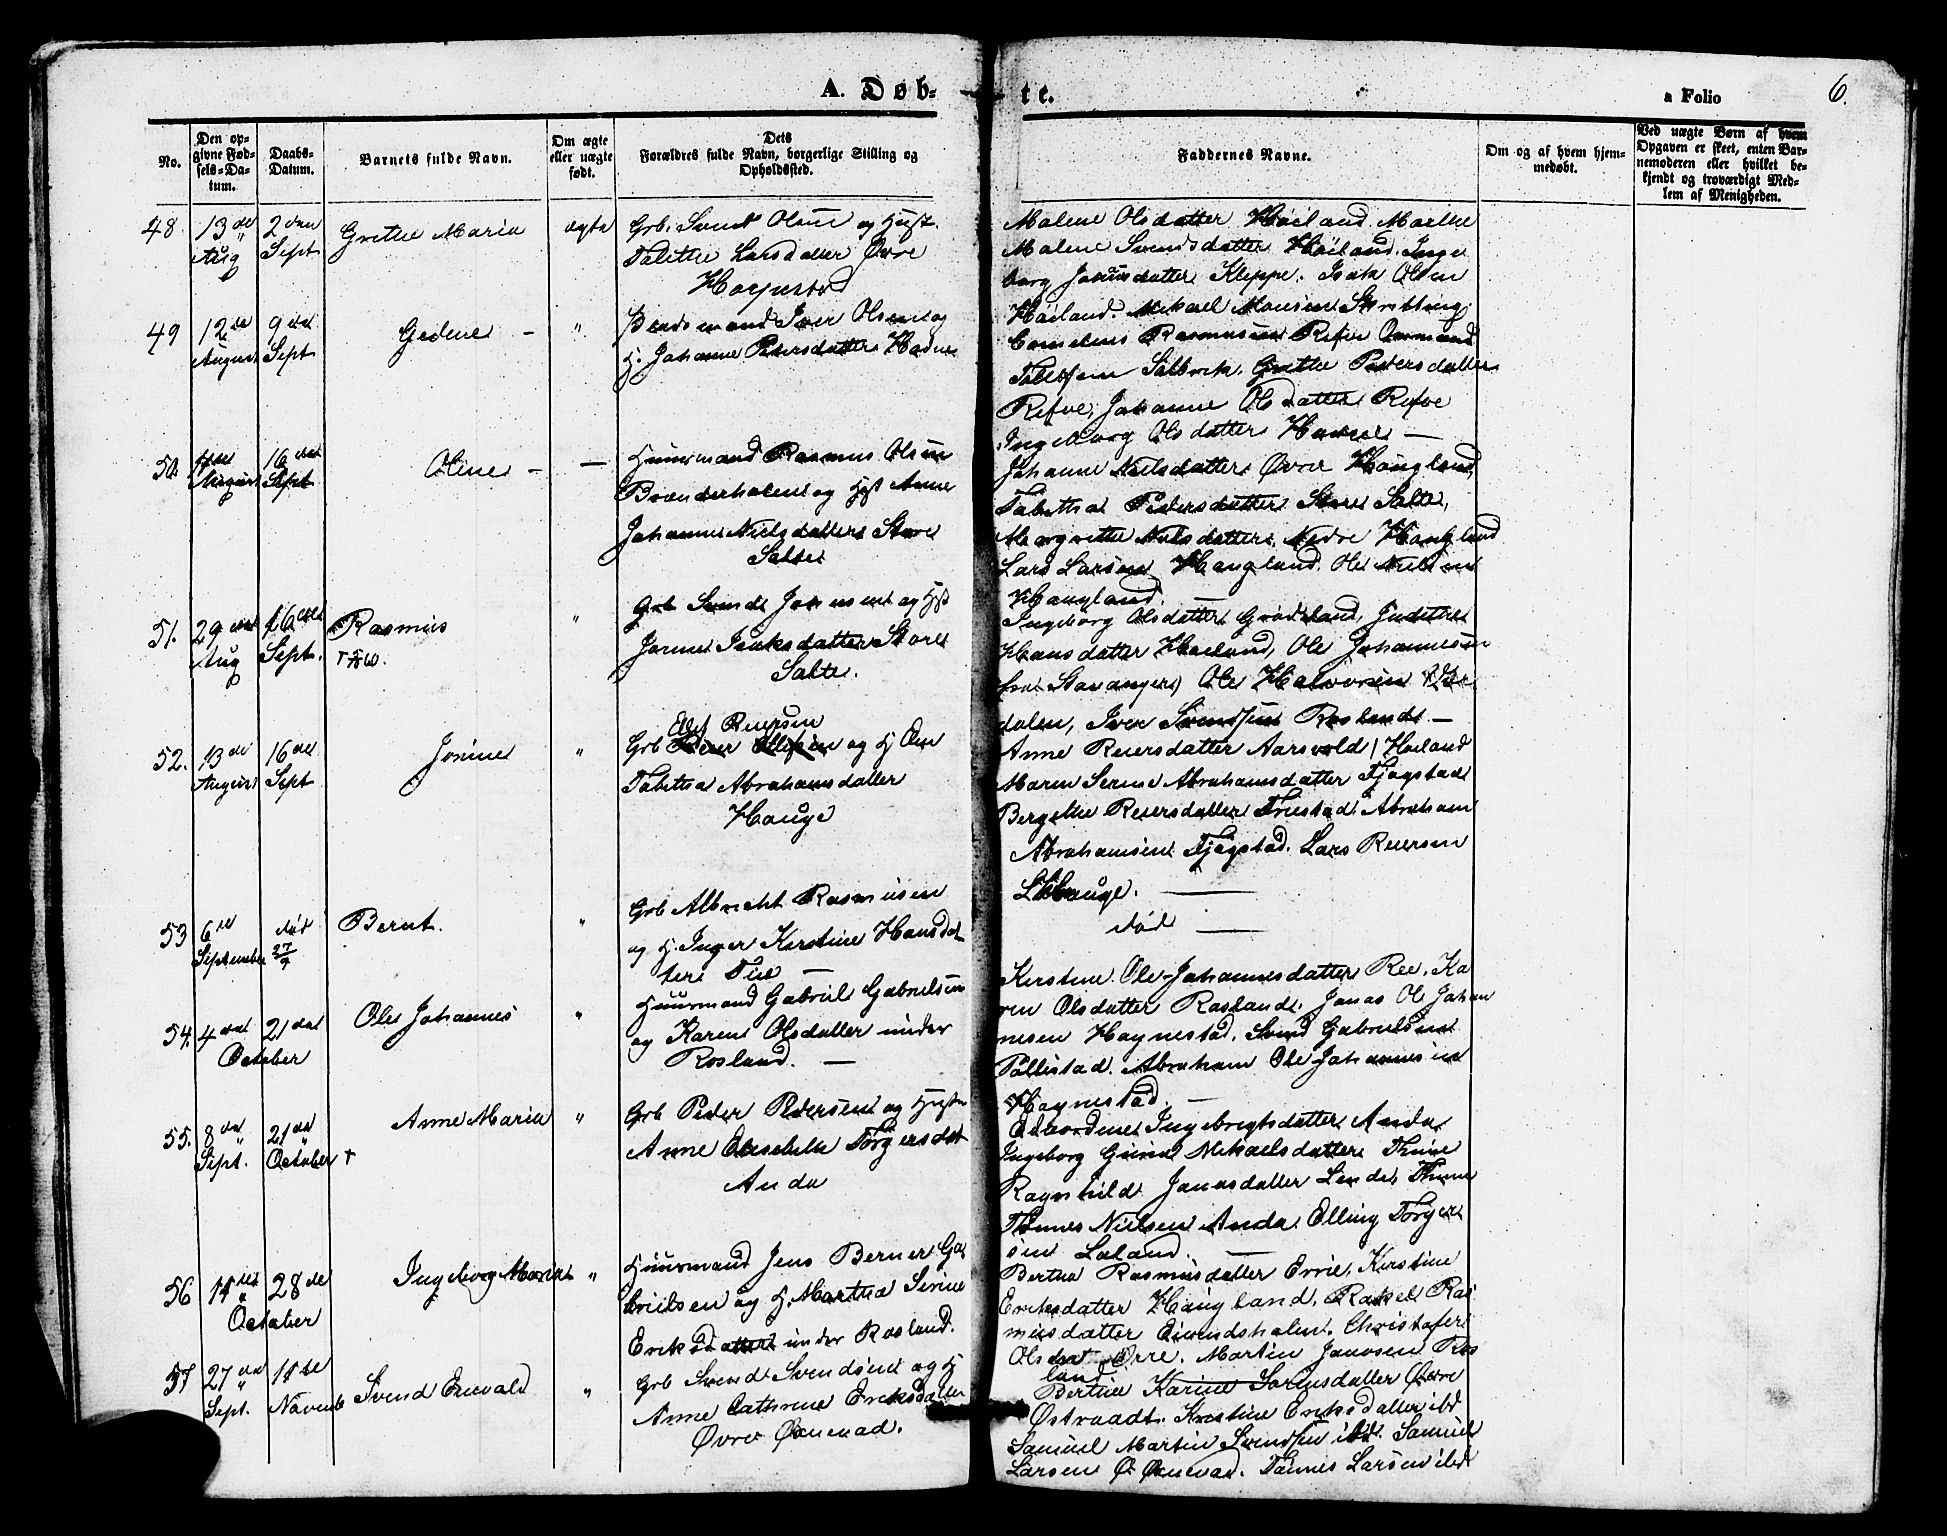 A. Døb-
te.
a Folio
6.
No.
Den opgivne Fødsels-Datum.
Daabs-Datum.
Barnets fulde Navn.
Om ægte eller uægte født.
Dets Forældres fulde Navn, borgerlige Stilling og Opholdssted.
Faddernes Navne.
Om og af hvem hjemmedøbt.
Ved uægte Børn af hvem Opgaven er skeet, enten Barnemoderen eller hvilket bekjendt og troværdigt Medlem af Menigheden.
48. 13de Aug
2den Sept
Grethe Maria
ægte
Grb. Svend Olsen og Hust.
Talette Larsdatter Øvre
Malene Olsdatter Høiland Marthe
Malene Svendsdatter Høiland. Inge
borg Jonasdatter Kleppe. Isak Olsen
Høiland. Mikael Monsen Skretting
49 12te August
9de Sept
Gedene -
"
Iver Olsen og
H. Johanne Pedersdatter Hadne
Cornelius Rasmussen Refve Ommund
Grethe Pedersdatter
Refve, Johanne Olsdatter Refve
Ingeborg Olsdatter Hadne —
50. August
16de Sept
Oline -
—
Huusmand Rasmus Olsen
Brænderhalen og Hst Anne
Johanne Nielsdatter Store
Salte
Johanne Nielsdatter Øvre Haugland,
Tabitha Pedersdatter Store Salte,
Margrethe Nielsdatter, Nedre Haugland
Lars Larsen Haugland. Ole Nielsen
Haugland. —
51. 29de Aug
16de Sept.
Rasmus
"
Grb Svend Johnsen og Hst
Isaksdatter Store
Salte.
Ingeborg Olsdatter Grødeland,
Hansdatter Høiland, Ole Johannesen
fra Stavanger) Ole Halvorsen
dalen, Iver Svendsen Roslande —
52. 13de August
16de Sept
Jonine
"
Elef Reiersen
Grb og H Ane
Tabitha Abrahamsdatter
Hauge
Anne Reiersdatter Aarsvold / Høiland
Maren Serine Abrahamsdatter Tjøgstad
Bergethe Reiersdatter Friestad. Abraham
Abrahamsen Tjøgstad. Lars Reiersen
Hauge. —
53 6te September
død 27/9
Bernt.
"
Grb Albrecht Rasmusen
og H. Inger Kirstine Hansdat
ter Tu —
død —
54. 4de October
21de
Ole Johannes
"
Huusmand Gabriel Gabrielsen
og Karen Olsdatter under
Rosland. —
Kirstine Ole-Johannesdatter Ree. Ka
ren Olsdatter Roslande. Jonas Ole Johan
nesen Haynestad. Svend Gabrielsen
Pollestad. Abraham Ole Johannesen
Haynestad. —
55. 8de Sept.
21de October †
Anne Maria
"
Grb Peder Pedersen og Hustr
Anne Torgersdat
Anda
Ingebregtsdatter, Anda,
Ingeborg Mikaelsdatter Thime
Ragnhild Jonasdatter Lende, Thime
Nielsen Anda. Elling Torger
sen Laland. —
56 October
28de
Ingeborg Maria
"
Huusmand Jens Berner Ga
brielsen og H. Martha Serine
Eriksdatter under Rosland.
Bertha Rasmusdatter Orre, Kirstine
Eriksdatter Haugland, Rakel Ras
musdatter Eivindsholen. Christofer
Olsdat Orre. Martin Jansen Ros
land.
57 27de Sept.
11te Novemb
Svend Enevald
"
Grb Svend Svendsen og H
Anne Cathrine Eriksdatter
Øvre Øxnevad.
Bertine Karine Sørensdatter Øvre
Østraadt. Kirstine Eriksdatter ibd
Samuel Martin Svendsen ibd. Samuel
Larsen Ø Øxnevad. Tønnes Larsen ibd